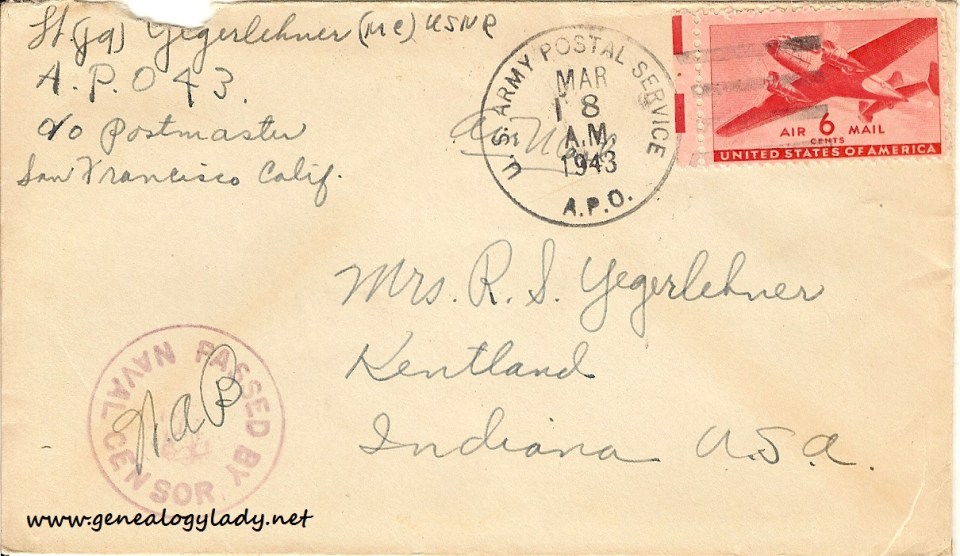 Lt.(jg) Yegerlehner (MC) USNR
A.P.O 43.
c/o Postmaster
San Francisco Calif.
U.S. ARMY POSTAL SERVICE
MAR
8
A.M.
1943
A.P.O.
Air Mail
AIR 6 MAIL
CENTS
UNITED STATES OF AMERICA
Mrs. R. S. Yegerlehner
Kentland
Indiana U.S.A.
PASSED BY
NAVAL CENSOR
www.genealogylady.net